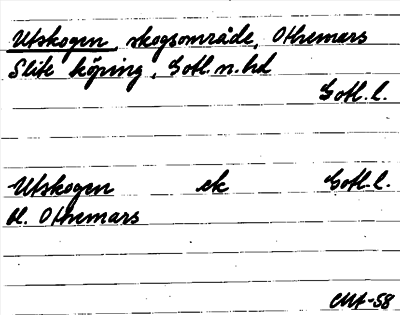 Utskogen, skogsområde, Othemars
Slite köping, Gotl. n. hd
Gotl. l.
Utskogen ek Gotl. l.
bl. Othemars
CMA-58